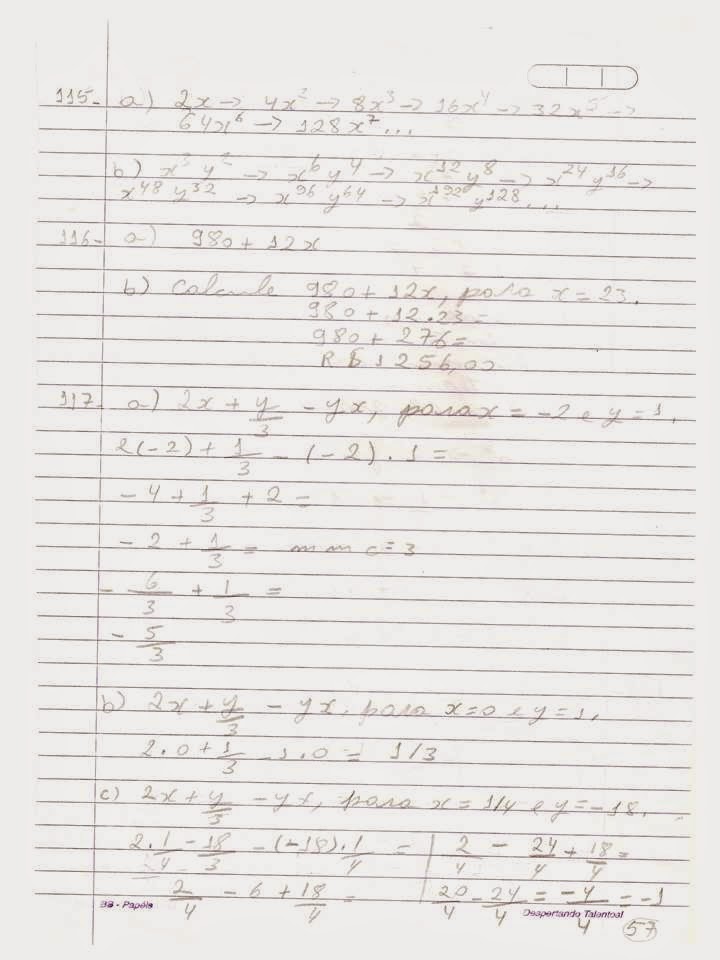 115- a) 2x → 4x² → 8x³ → 16x⁴ → 32x⁵ →
64x⁶ → 128x⁷...
b) x³y² → x⁶y⁴ → x¹²y⁸ → x²⁴y¹⁶ →
x⁴⁸y³² → x⁹⁶y⁶⁴ → x¹⁹²y¹²⁸...
116- a) 980 + 12x
b) Calcule 980 + 12x, para x = 23.
980 + 12.23 =
980 + 276 =
R$ 1256,00
117- a) 2x + y/3 - yx, para x = -2 e y = 1.
2(-2) + 1/3 - (-2) . 1 =
- 4 + 1/3 + 2 =
- 2 + 1/3 = mmc = 3
- 6/3 + 1/3 =
- 5/3
b) 2x + y/3 - yx, para x = 0 e y = 1.
2.0 + 1/3 - 1.0 = 1/3
c) 2x + y/3 - yx, para x = 1/4 e y = -18.
2.1/4 - 18/3 - (-18).1/4 = | 2/4 - 24/4 + 18/4 =
2/4 - 6 + 18/4 = 20/4 - 24/4 = -4/4 = -1
BB - Papéis Despertando Talentoal
57